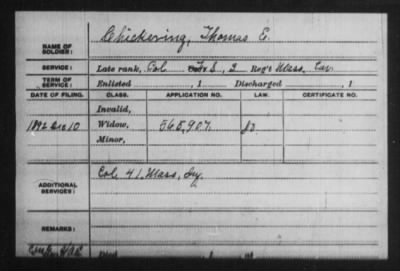 NAME OF SOLDIER: Chickering, Thomas E.
SERVICE: Late rank, Col F&S, 3 Reg't Mass. Cav.
TERM OF SERVICE: Enlisted , 1 Discharged , 1
DATE OF FILING. CLASS. APPLICATION NO. LAW. CERTIFICATE NO.
Invalid,
1892 Dec 10 Widow, 565,907.
Minor,
ADDITIONAL SERVICES: Col. 41, Mass, Inf.
REMARKS: